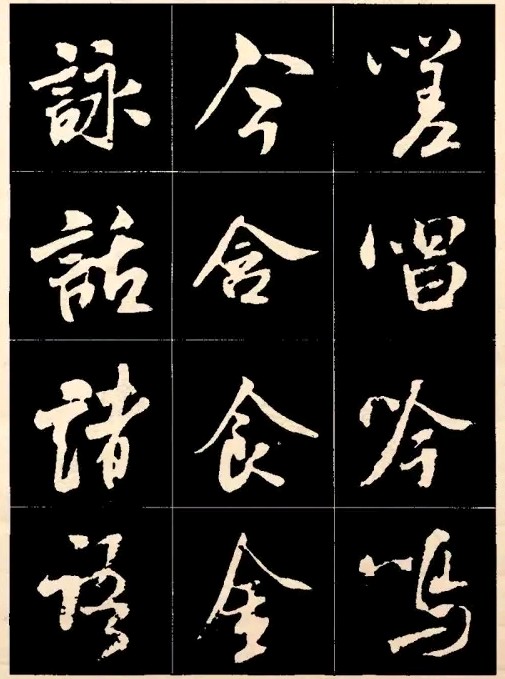 嗟唱吟鳴
今含食金
詠話諸語